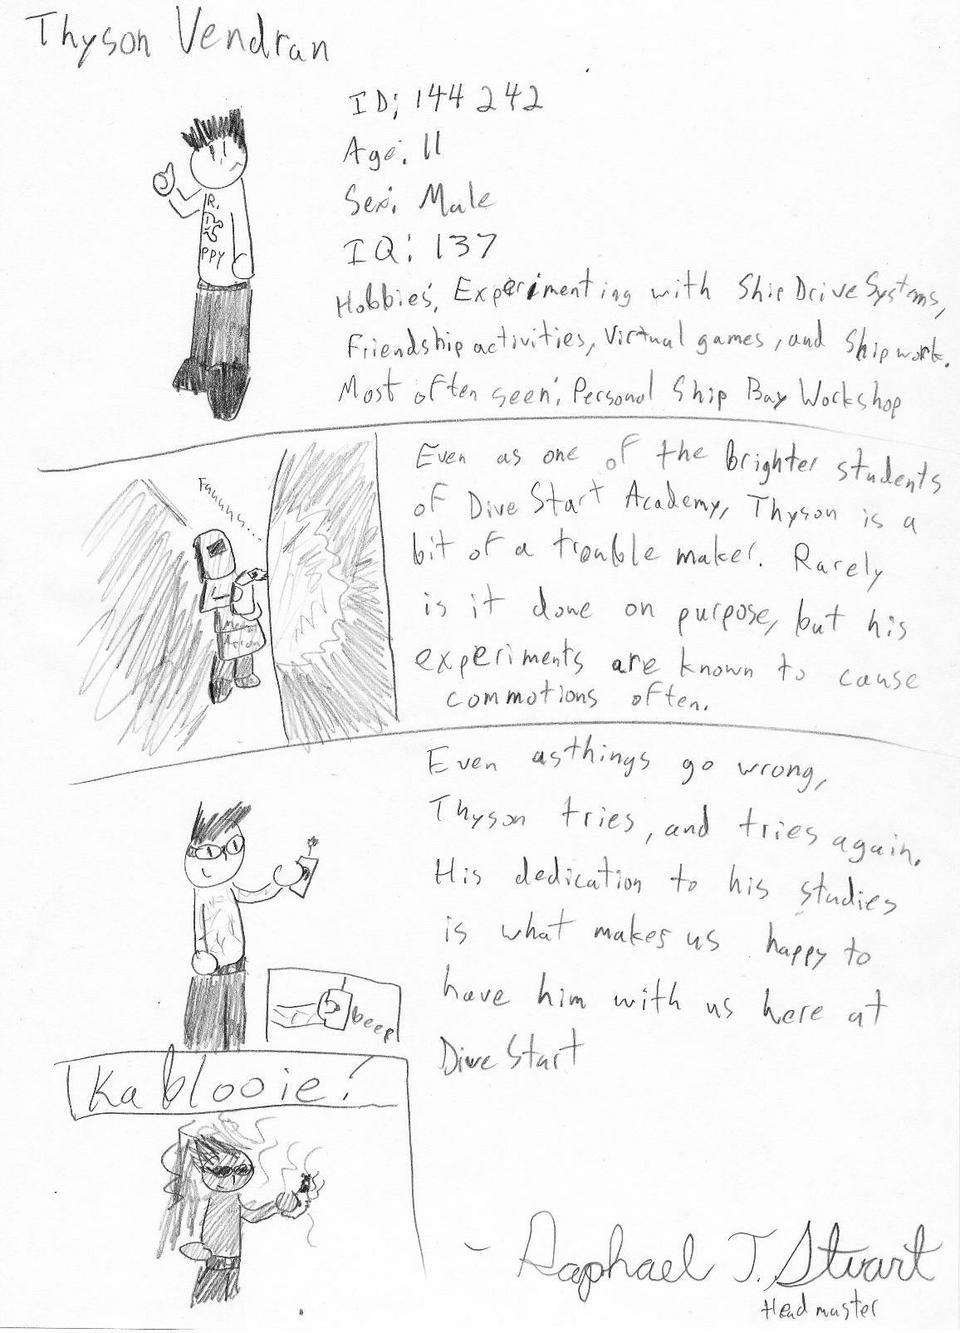 Thyson Vendran
ID: 144242
Age: 11
Sex: Male
IQ: 137
Hobbies: Experimenting with Ship Drive Systems,
Friendship activities, Virtual games, and Ship work.
Most often seen: Personal Ship Bay Workshop
R.
PPY
Even as one of the brighter students
of Dive Start Academy, Thyson is a
bit of a trouble maker. Rarely
is it done on purpose, but his
experiments are known to cause
commotions often.
Even as things go wrong,
Thyson tries, and tries again.
His dedication to his studies
is what makes us happy to
have him with us here at
Dive Start
beep
Kablooie!
- Raphael T. Stuart
Head master